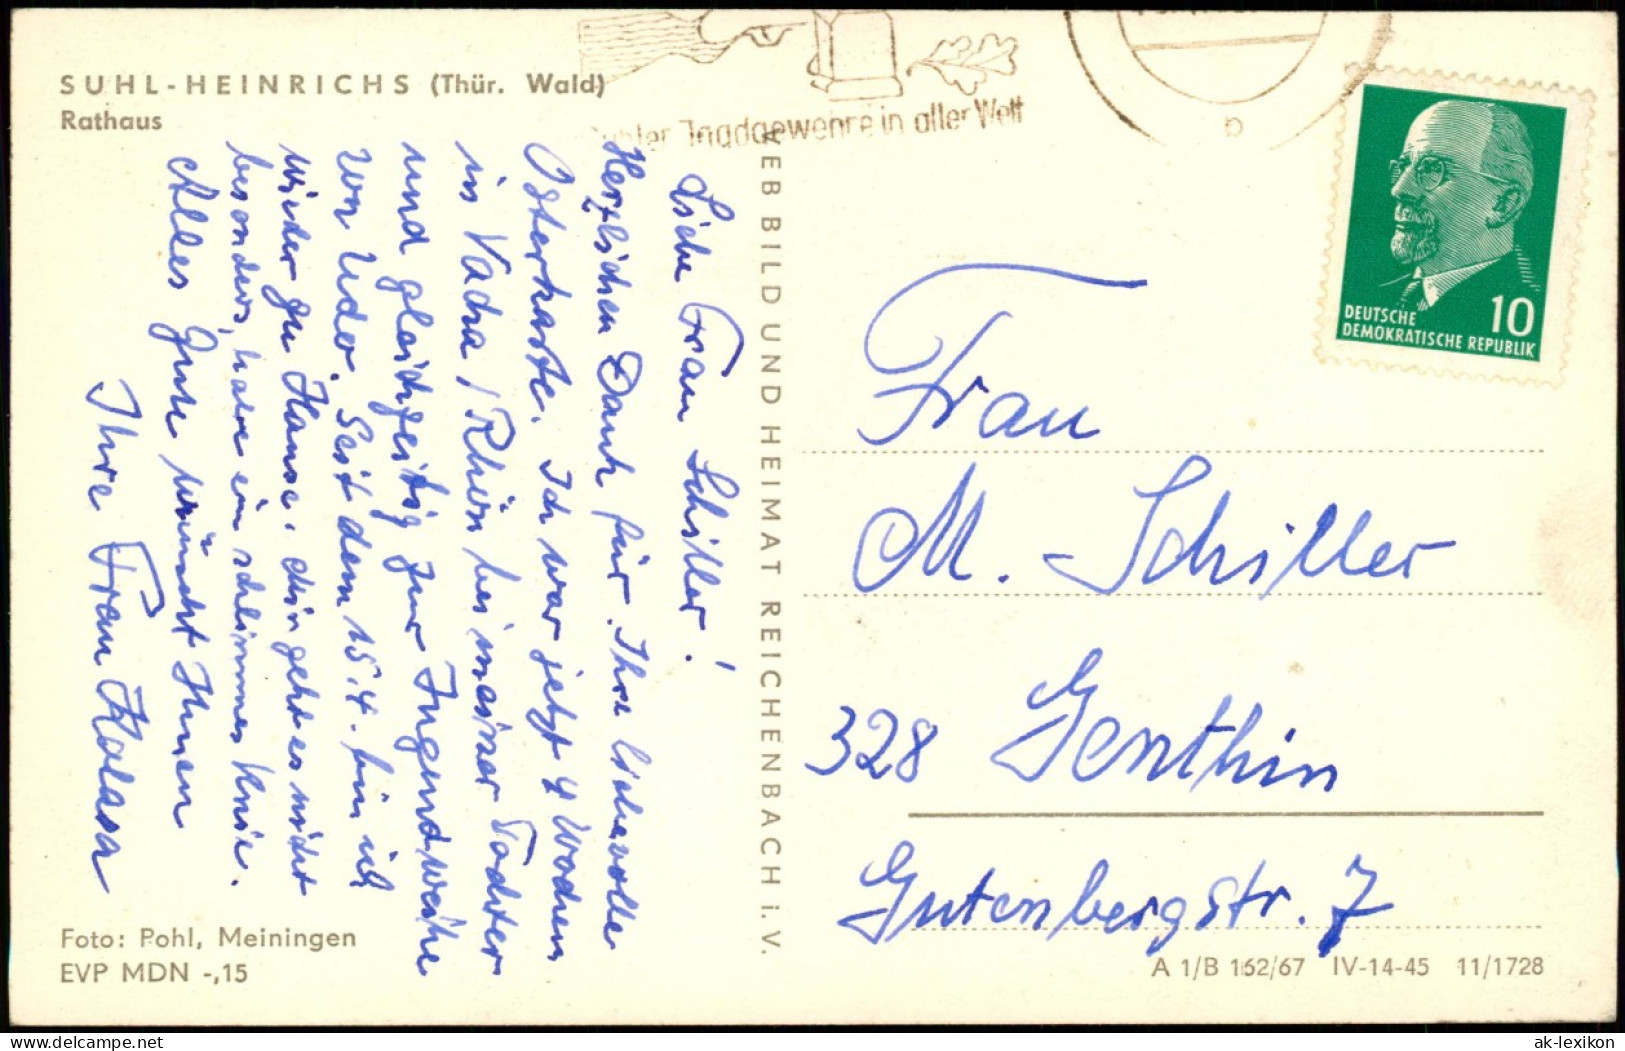 SUHL-HEINRICHS (Thür. Wald)
Rathaus
Suhler Jagdgewehre in aller Welt
Liebe Frau Schiller!
Herzlichen Dank für Ihre liebevolle
Osterkarte. Ich war jetzt 4 Wochen
in Vacha / Rhön bei meiner Tochter
und gleichzeitig zur Jugendweihe
von Udo. Seit dem 15.4. bin ich
wieder zu Hause, mir geht es nicht
besonders, habe ein schlimmes Knie.
Alles Gute wünscht Ihnen
Ihre Frau Kolasa
VEB BILD UND HEIMAT REICHENBACH i. V.
DEUTSCHE
DEMOKRATISCHE REPUBLIK
10
Frau
M. Schiller
328 Genthin
Gutenbergstr. 7
Foto: Pohl, Meiningen
EVP MDN -,15
A 1/B 162/67 IV-14-45 11/1728
www.delcampe.net
ak-lexikon